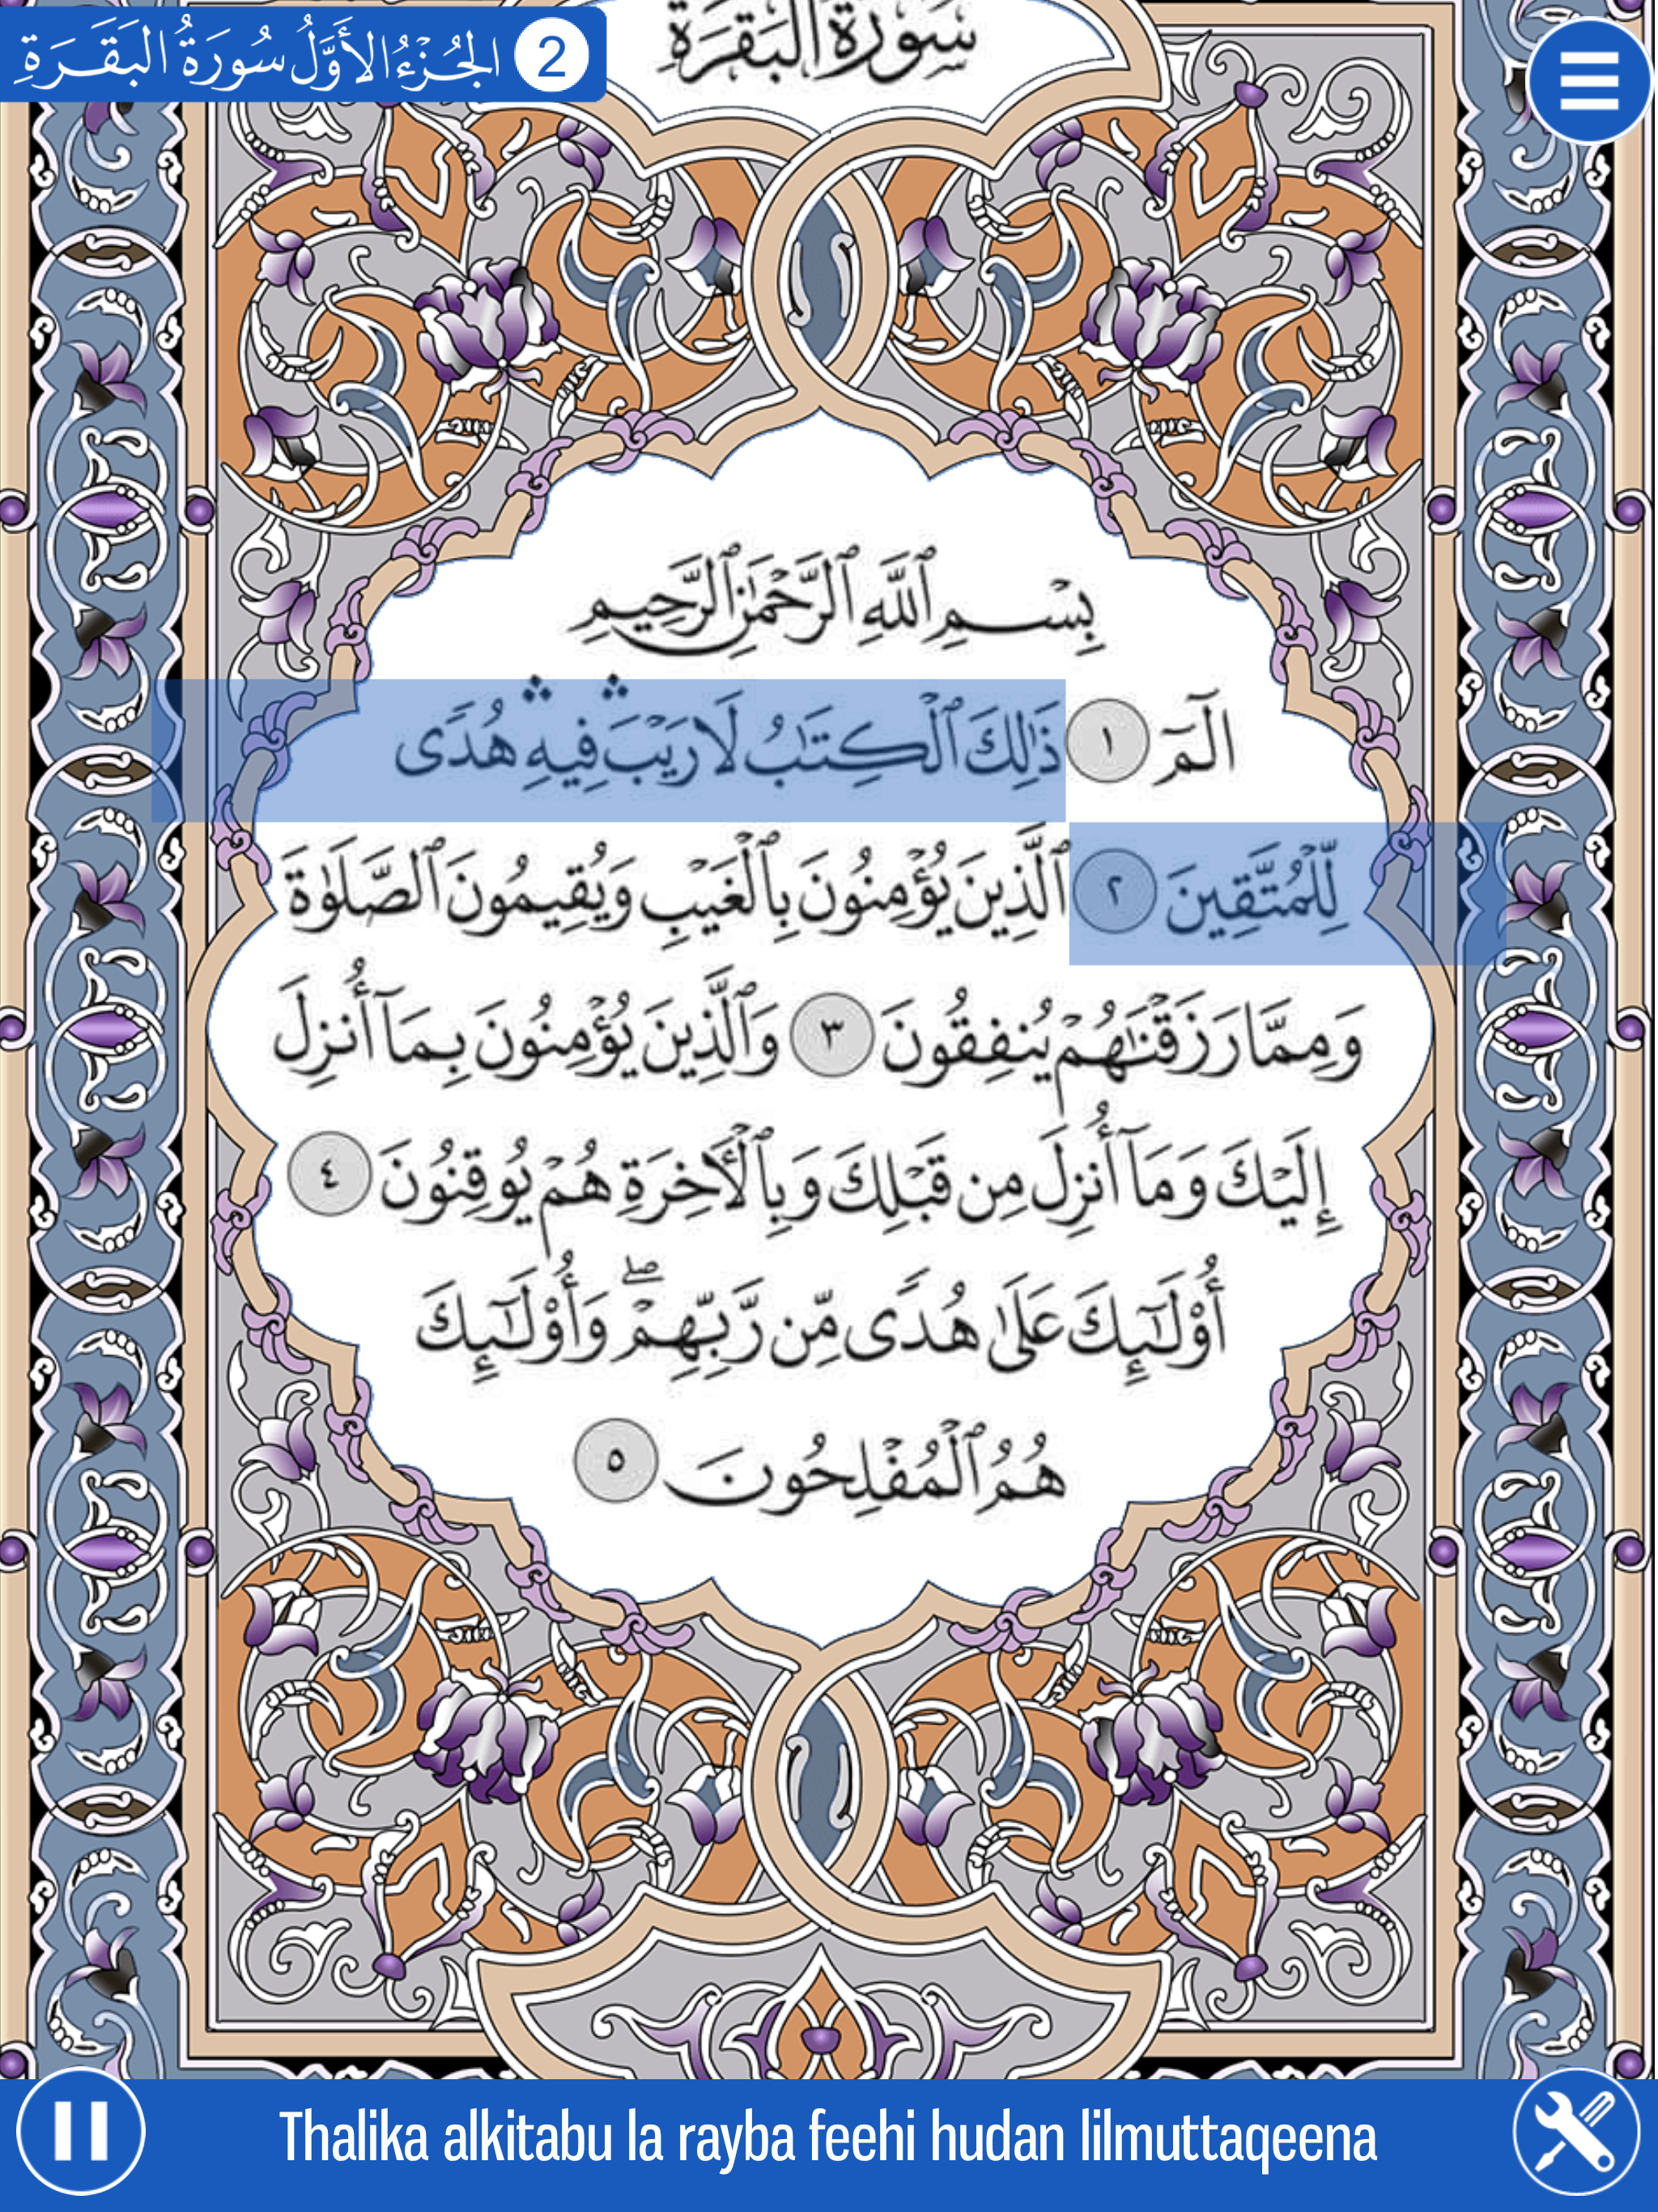 الجُزْءُ الأَوَّلُ سُورَةُ البَقَرَةِ 2
سُورَةُ البَقَرَةِ
بِسۡمِ ٱللَّهِ ٱلرَّحۡمَٰنِ ٱلرَّحِيمِ
الٓمٓ ١ ذَٰلِكَ ٱلۡكِتَٰبُ لَا رَيۡبَۛ فِيهِۛ هُدٗى
لِّلۡمُتَّقِينَ ٢ ٱلَّذِينَ يُؤۡمِنُونَ بِٱلۡغَيۡبِ وَيُقِيمُونَ ٱلصَّلَوٰةَ
وَمِمَّا رَزَقۡنَٰهُمۡ يُنفِقُونَ ٣ وَٱلَّذِينَ يُؤۡمِنُونَ بِمَآ أُنزِلَ
إِلَيۡكَ وَمَآ أُنزِلَ مِن قَبۡلِكَ وَبِٱلۡأٓخِرَةِ هُمۡ يُوقِنُونَ ٤
أُوْلَٰٓئِكَ عَلَىٰ هُدٗى مِّن رَّبِّهِمۡۖ وَأُوْلَٰٓئِكَ
هُمُ ٱلۡمُفۡلِحُونَ ٥
Thalika alkitabu la rayba feehi hudan lilmuttaqeena